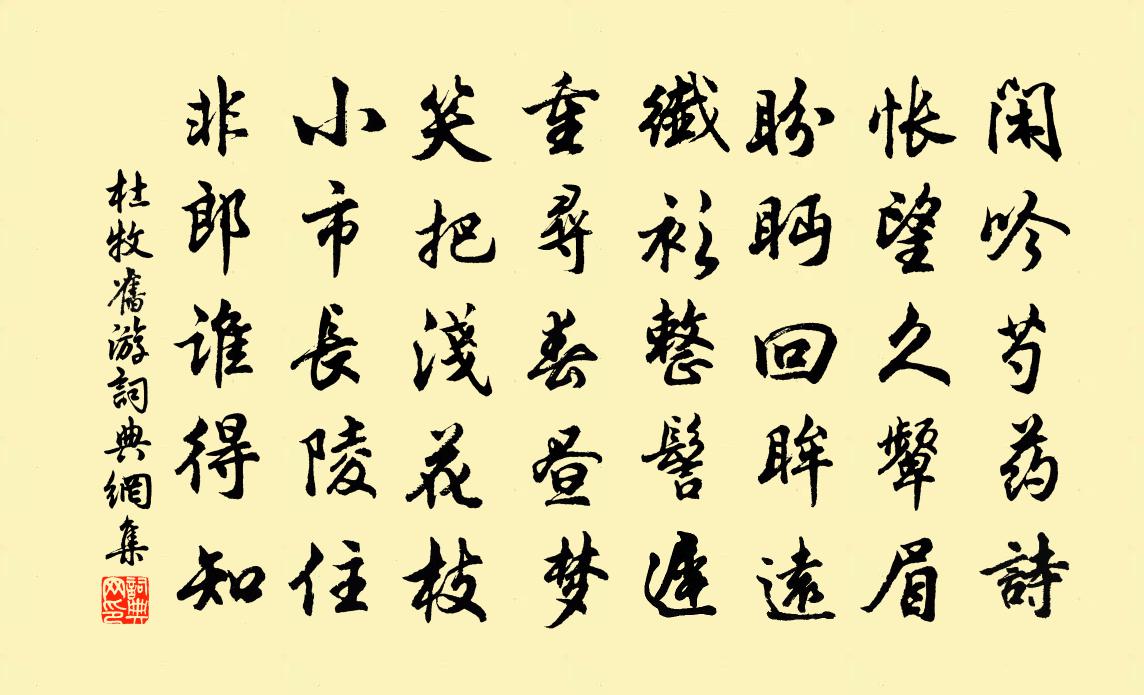 閑吟芍药詩
怅望久顰眉
盼眄回眸遠
纖衫整髻遲
重尋春昼梦
笑把淺花枝
小市長陵住
非郎誰得知
杜牧舊游詞典網集
詞典网印